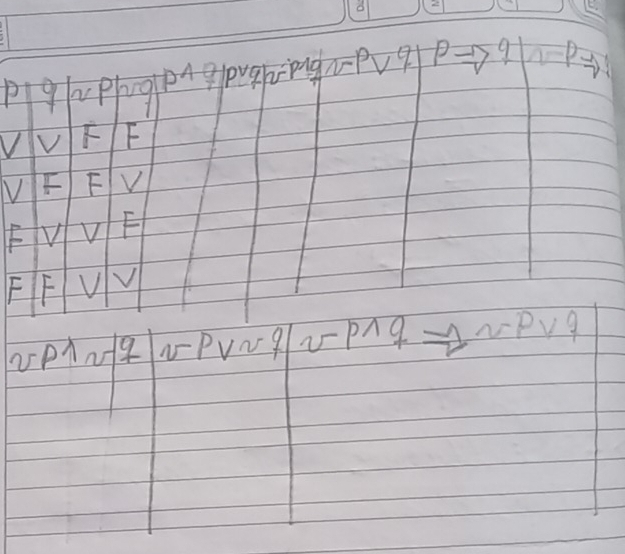 p | q | ~p | ~q | p ∧ q | p v q | ~p ∧ q | ~p v q | p ⇒ q | ~p ⇒
V | V | F | F
V | F | F | V
F | V | V | F
F | F | V | V
~p ∧ ~q | ~p v ~q | ~p ∧ q ⇒ ~p v q